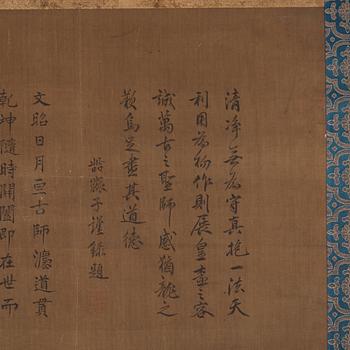 清淨無為守真抱一法天
利用為物作則展皇壼之容
誠萬古之聖師感猶龍之
歎烏足盡其道德
謹錄題
文昭日月亘古師濂道貫
乾坤隨時闔闢即在世而